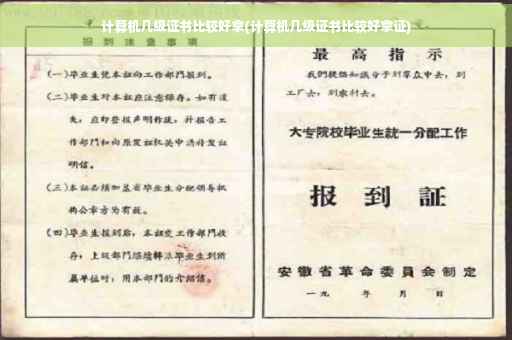 计算机几级证书比较好拿(计算机几级证书比较好拿证)
报到注意事项
(一)毕业生凭本证向工作部门报到。
(二)毕业生对本证应注意保存。如有遗
失，应即登报声明作废，并报告工
作部门和向原发证机关申请补发证
明信。
(三)本证必须加盖省毕业生分配领导机
构公章方为有效。
(四)毕业生报到后，本证交工作部门收
存；上级部门继续转派毕业生到所
属单位时，用本部门的介绍信。
最高指示
我們提倡知識分子到羣众中去，到
工厂去，到农村去。
大专院校毕业生統一分配工作
报到証
安徽省革命委員会制定
一九 年 月 日